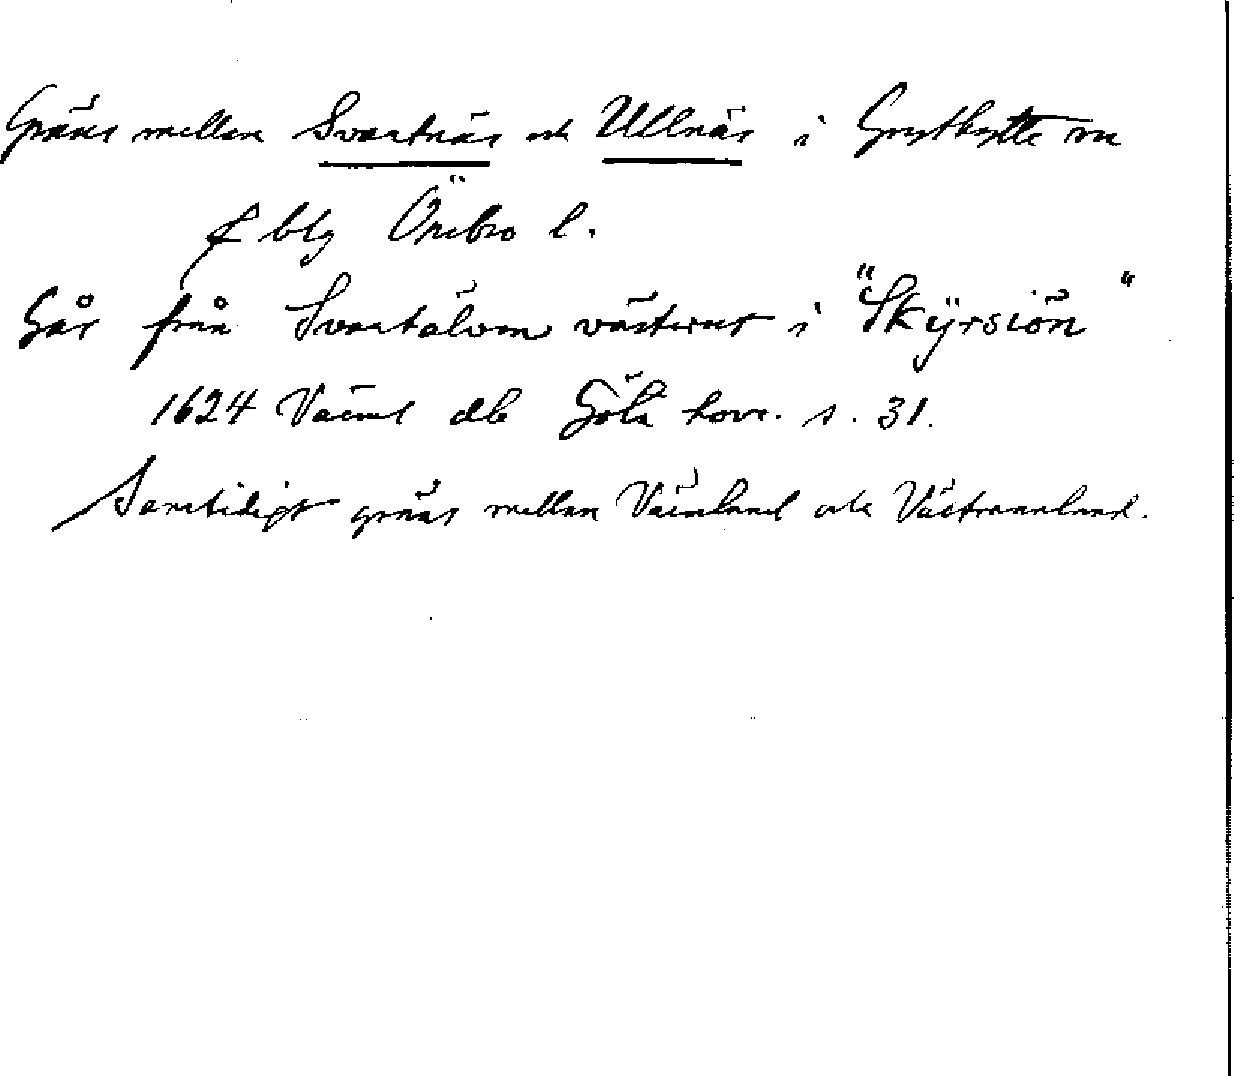 Gräns mellan Svartnäs och Ullnäs i Grythytte sn
f blg Örebro l.
Går från Svartälven västerut i "Skÿrsiön"
1624 Värml db Göta hovr. s. 31.
Samtidigt gräns mellan Värmland och Västmanland.